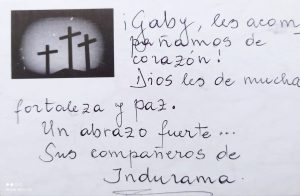 ¡Gaby, les acom
pañamos de
corazón!
Dios les de mucha
fortaleza y paz.
Un abrazo fuerte...
Sus compañeros de
Indurama.